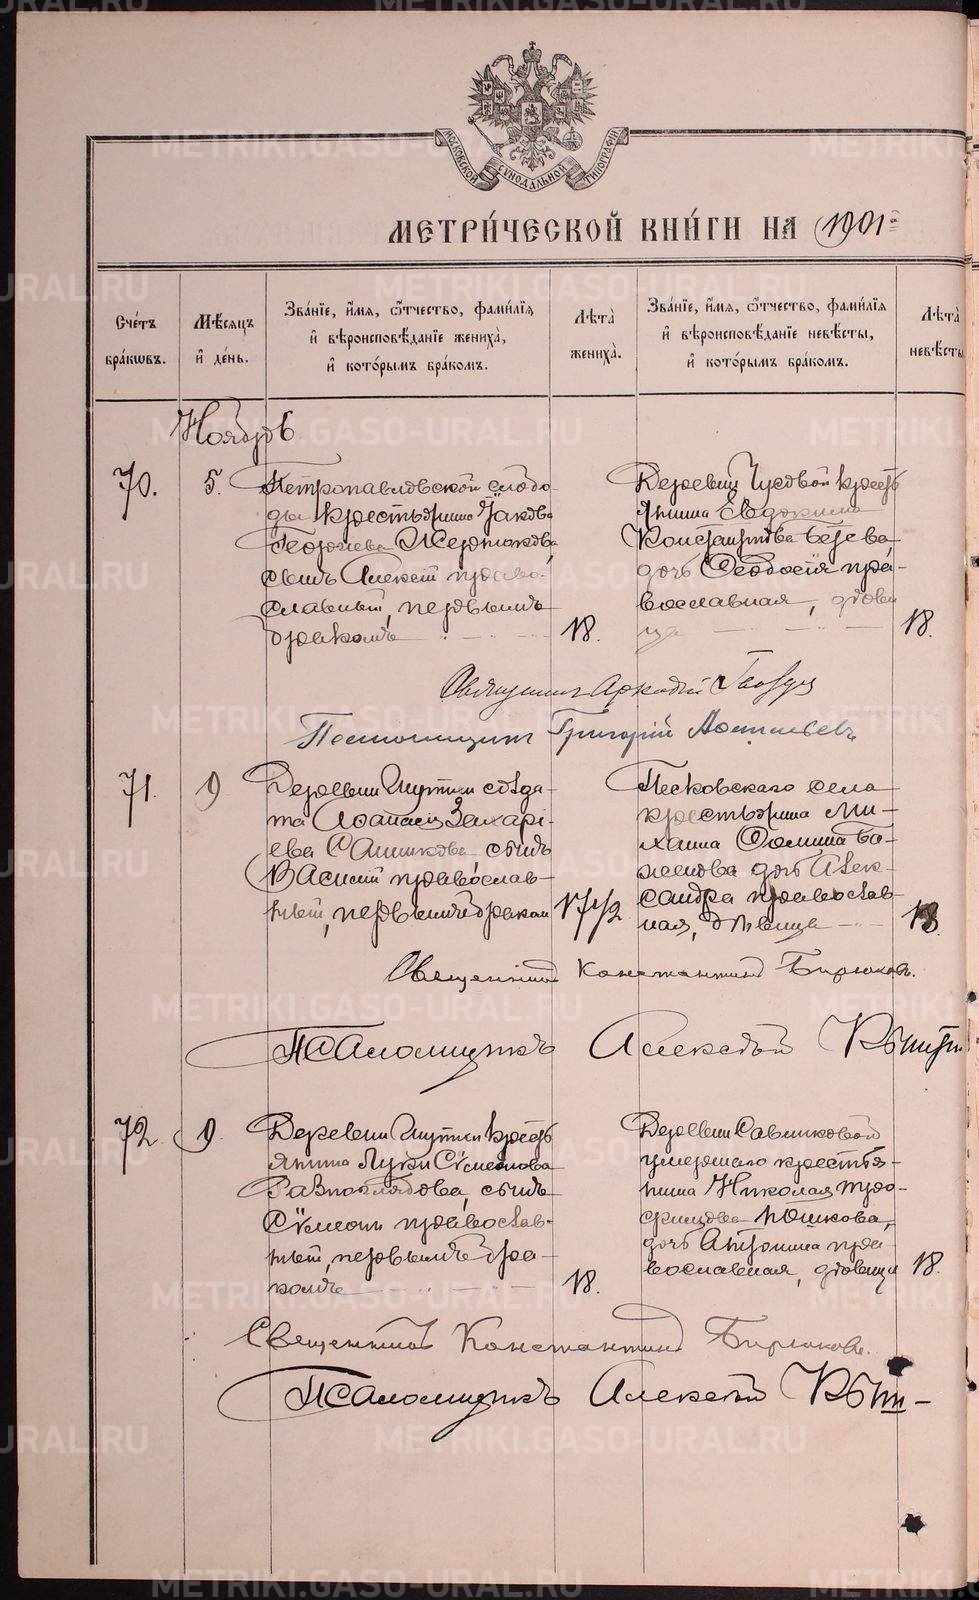 МОСКОВСКОЙ СѴНОДАЛЬНОЙ ТИПОГРАФІИ
МЕТРИ́ЧЕСКОЙ КНИ́ГИ НА 1901
Сче́тъ бра́кѡвъ.
Мѣ́сяцъ и҆ де́нь.
Зва́нїе, и҆́мѧ, ѻ҆́тчество, фами́лїѧ
и҆ вѣроисповѣ́данїе жениха̀,
и҆ кото́рымъ бра́комъ.
Лѣ́та жениха̀.
Зва́нїе, и҆́мѧ, ѻ҆́тчество, фами́лїѧ
и҆ вѣроисповѣ́данїе невѣ́сты,
и҆ кото́рымъ бра́комъ.
Лѣ́та невѣ́сты
Ноябрь
70.
5.
Петропавловской слобо-
ды крестьянина Іакова
Георгіева
сынъ Алексій право-
славный, первымъ
бракомъ
18.
Деревни Чусовой кресть
янина Евдокима
Константинова
дочь Ѳеодосія пра-
вославная, дѣви
ца
18.
Священникъ Аркадій
Псаломщикъ Григорій
71.
9
Деревни солда-
та Аѳанасія Захарі-
ева сынъ
Василій православ-
ный, первымъ бракомъ
17 1/2
Песковскаго села
крестьянина Ми-
хаила Ѳомина Ба-
женова дочь Алек-
сандра православ-
ная, дѣвица
18.
Священникъ Константинъ Бирюковъ.
Псаломщикъ Алексѣй
72.
9.
Деревни кресть
янина Луки Сѵмеонова
сынъ
Сѵмеонъ православ-
ный, первымъ бра-
комъ
18.
Деревни Савиковой
умершаго крестья-
нина Николая Тро-
фимова Юшкова,
дочь Антонина пра-
вославная, дѣвица
18.
Священникъ Константинъ Бирюковъ.
Псаломщикъ Алексѣй
METRIKI.GASO-URAL.RU